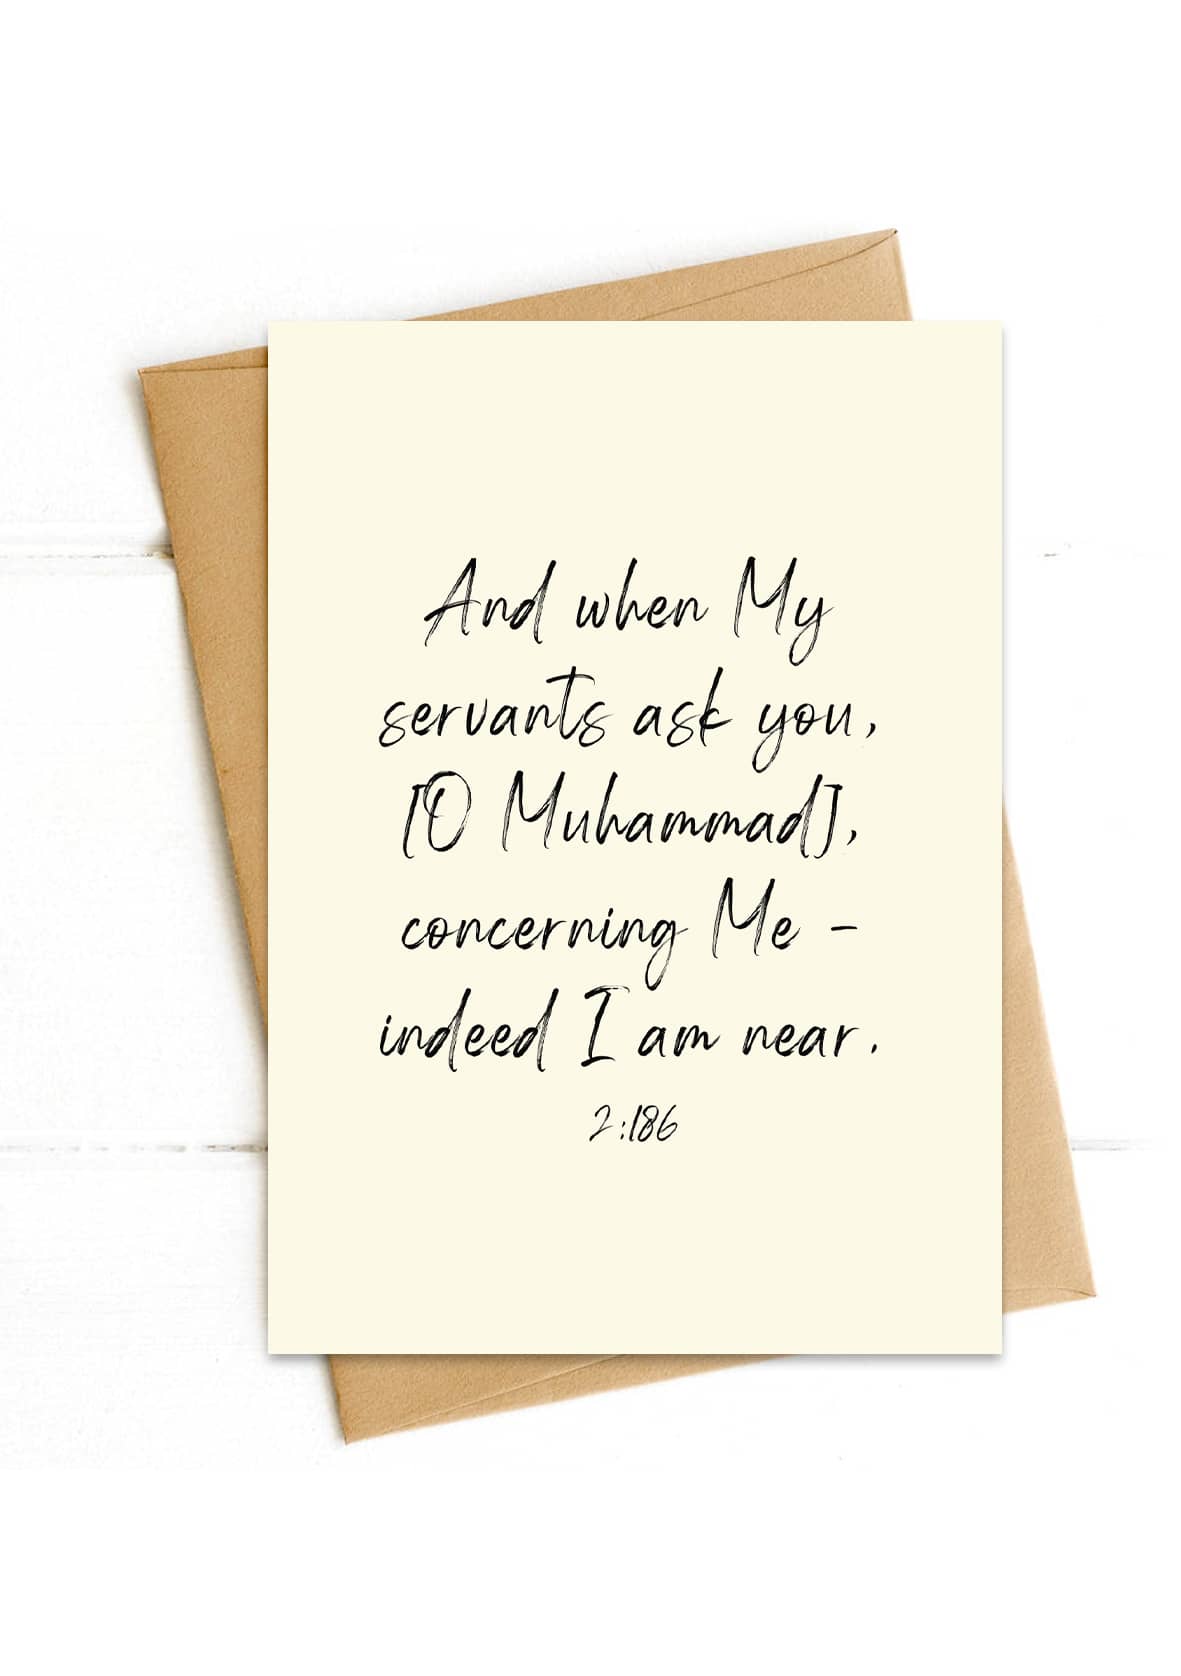 And when My
servants ask you,
[O Muhammad],
concerning Me -
indeed I am near.
2:186